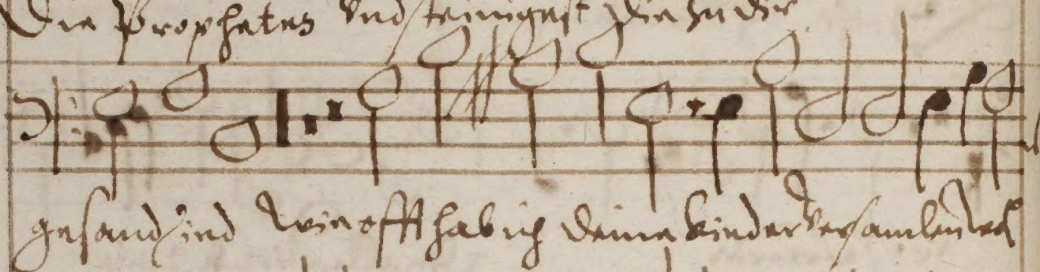 die Prophetes Vnd steinigest die zu dir
gesand sind wie offt hab ich deine kinder versamlen wol